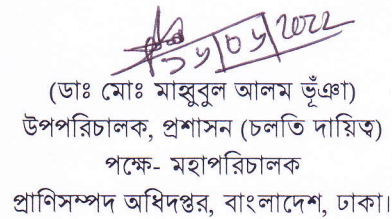 (ডাঃ মোঃ মাহবুবুল আলম ভূঁঞা)
উপপরিচালক, প্রশাসন (চলতি দায়িত্ব)
পক্ষে- মহাপরিচালক
প্রাণিসম্পদ অধিদপ্তর, বাংলাদেশ, ঢাকা।